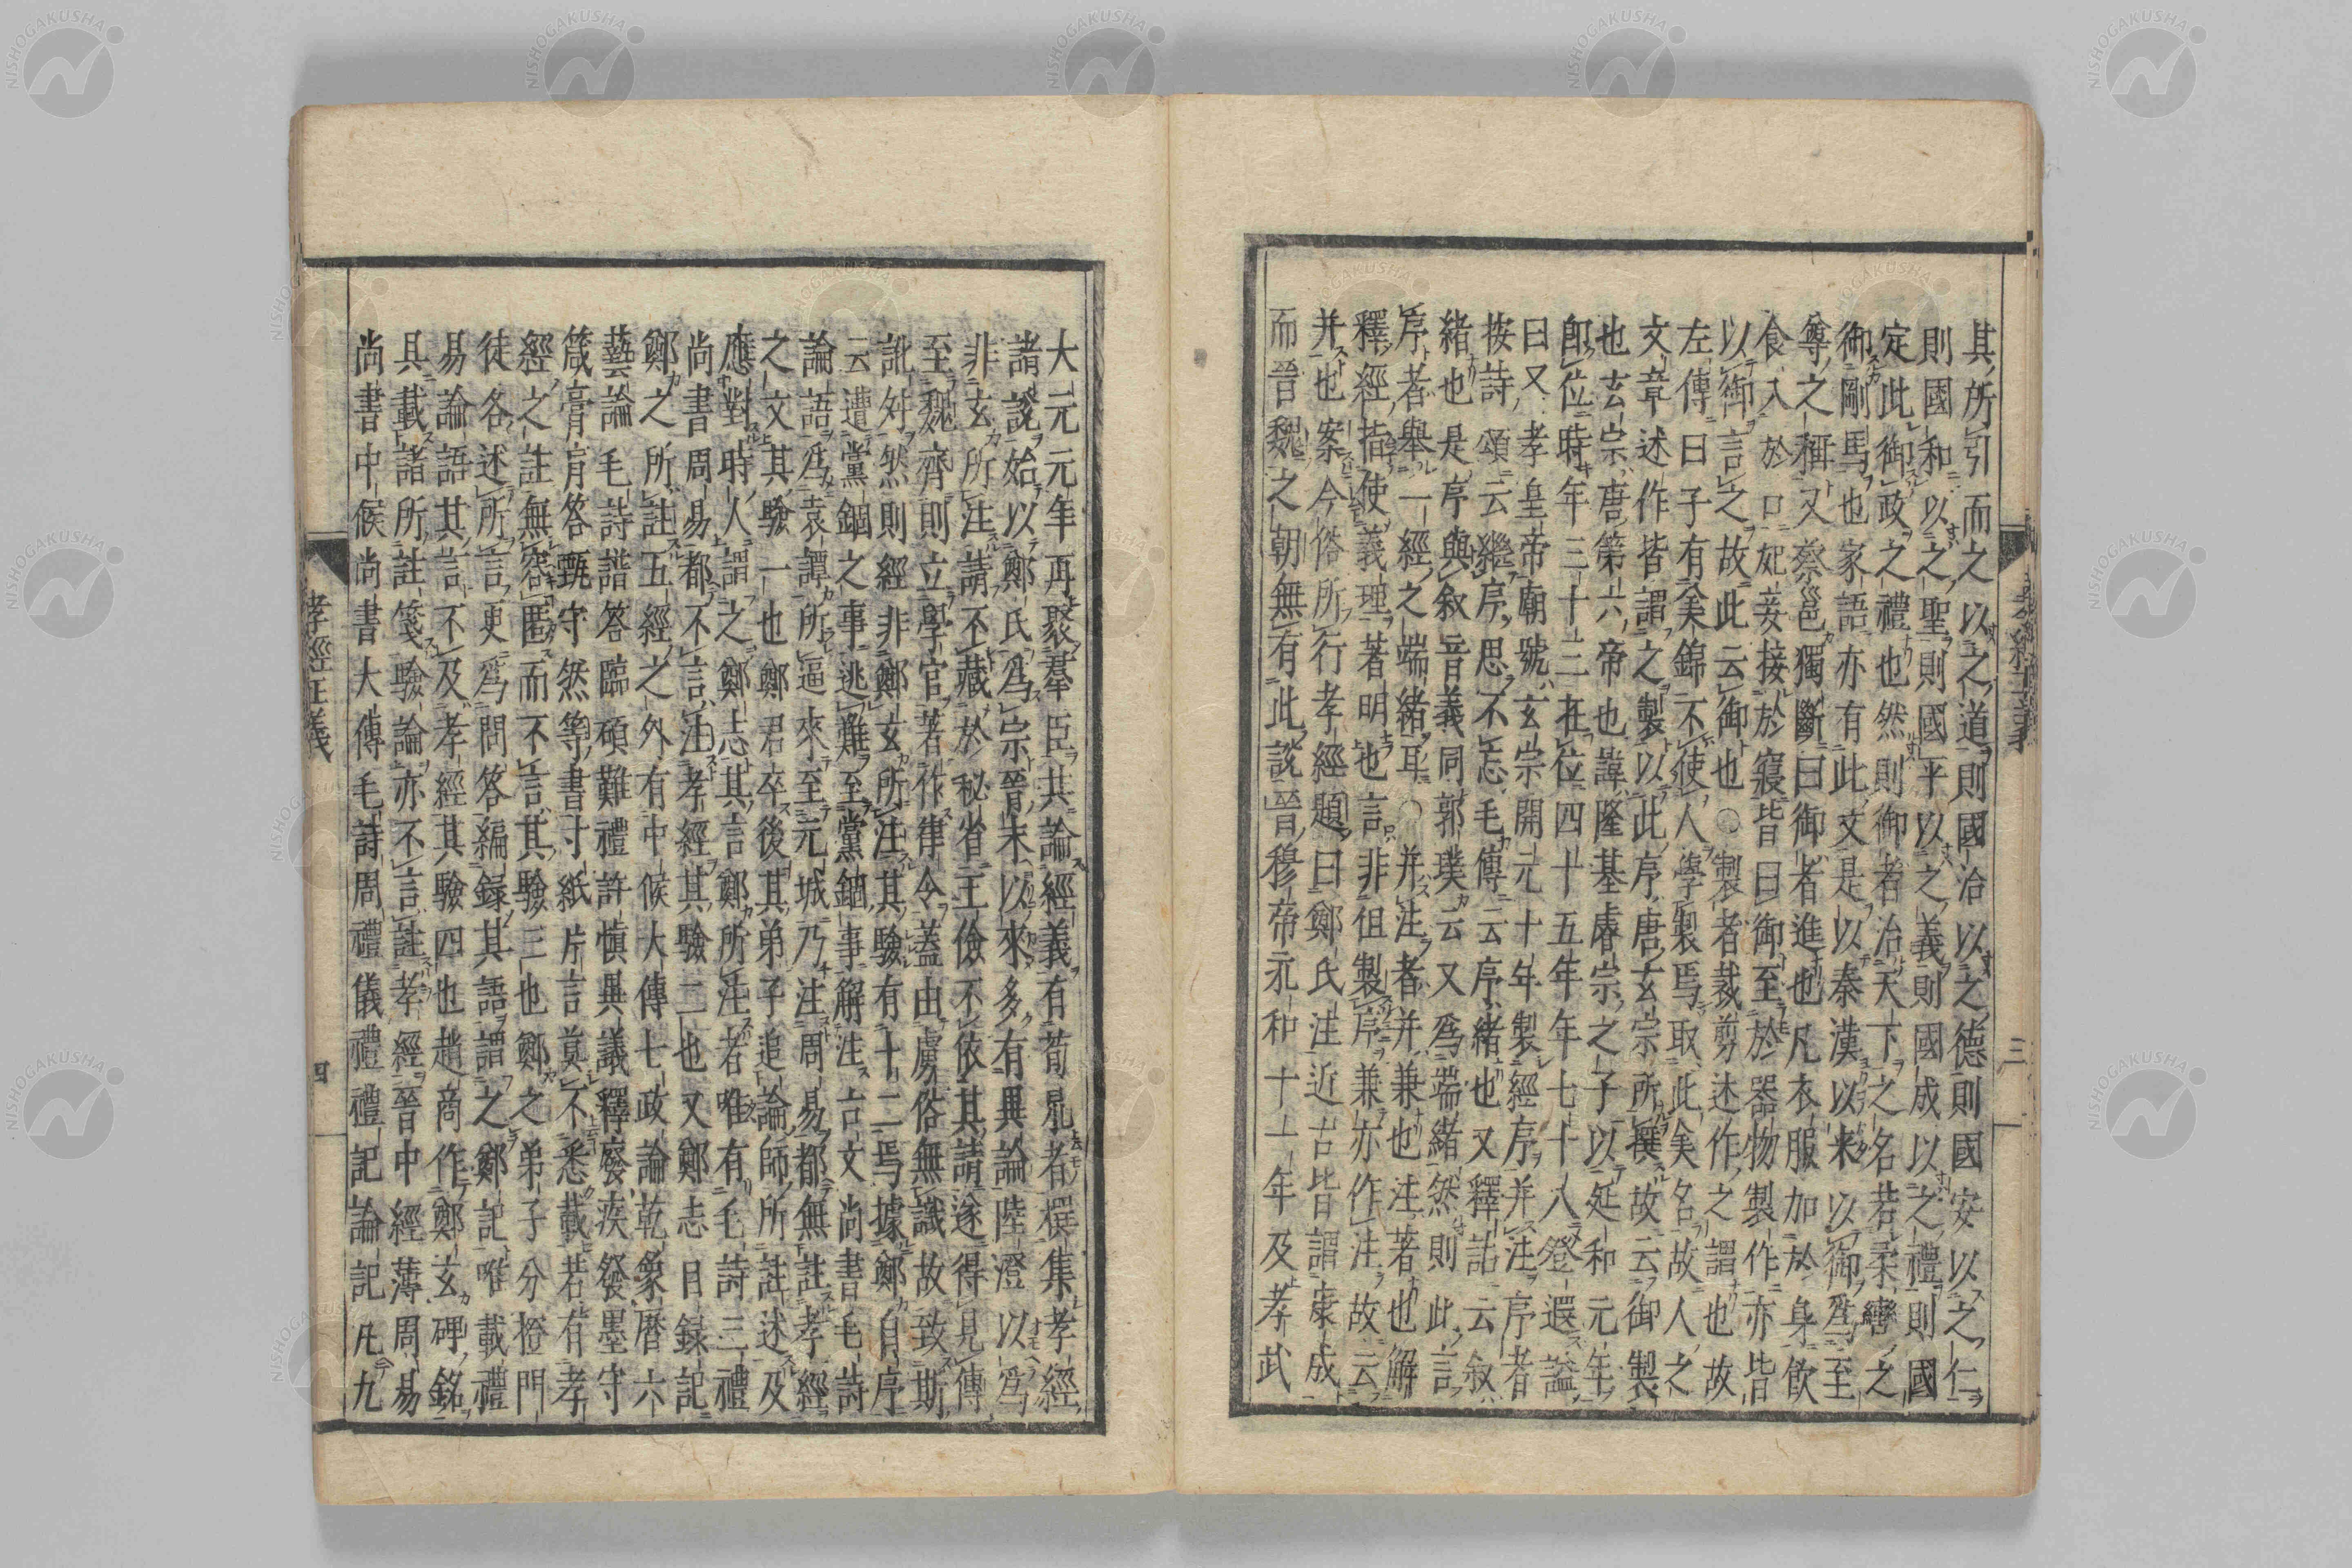 其所引而之以之道則國治以之德則國安以之仁
則國和以之聖則國平以之義則國成以之禮則國
定此御政之禮也然則御者治天下之名若柔轡之
御剛馬也家語亦有此文是以秦漢以來以御爲至
尊之稱又蔡邕獨斷曰御者進也凡衣服加於身飲
食入於口妃妾接於寢皆曰御至於器物製作亦皆
以御言之故此云御也○製者裁剪述作之謂也故
左傳曰子有美錦不使人學製焉取此美名故人之
文章述作皆謂之製以此序唐玄宗所撰故云御製
也玄宗唐第六帝也諱隆基睿宗之子以延和元年
即位時年三十三在位四十五年年七十八登遐謚
曰又孝皇帝廟號玄宗開元十年製經序并注序者
按詩頌云繼序思不忘毛傳云序緒也又釋詁云叙
緒也是序與叙音義同郭璞云又爲端緒然則此言
序者舉一經之端緒耳○并注者并兼也注著也解
釋經指使義理著明也言非但製序兼亦作注故云
并也案今俗所行孝經題曰鄭氏注近古皆謂康成
而晉魏之朝無有此說晉穆帝永和十一年及孝武
孝經正義 三
大元元年再聚羣臣共論經義有荀昶者撰集孝經
諸說始以鄭氏爲宗晉末以來多有異論陸澄以爲
非玄所注請不藏於秘省王儉不依其請遂得見傳
至魏齊則立學官著作律令蓋由虜俗無識故致斯
訛舛然則經非鄭玄所注其驗有十二焉據鄭自序
云遭黨錮之事逃難至黨錮事解注古文尚書毛詩
論語爲袁譚所逼來至元城乃注周易都無註孝經
之文其驗一也鄭君卒後其弟子追論師所註述及
應對時人謂之鄭志其言鄭所注者唯有毛詩三禮
尚書周易都不言注孝經其驗二也又鄭志目録記
鄭之所註五經之外有中候大傳七政論乾象曆六
藝論毛詩譜答臨碩難禮許慎異議釋廢疾發墨守
箴膏肓答甄守然等書寸紙片言莫不悉載若有孝
經之註無容匿而不言其驗三也鄭之弟子分授門
徒各述所言更爲問答編録其語謂之鄭記唯載禮
易論語其言不及孝經其驗四也趙商作鄭玄碑銘
具載諸所註箋驗論亦不言註孝經晉中經薄周易
尚書中候尚書大傳毛詩周禮儀禮禮記論記凡九
孝經正義 四